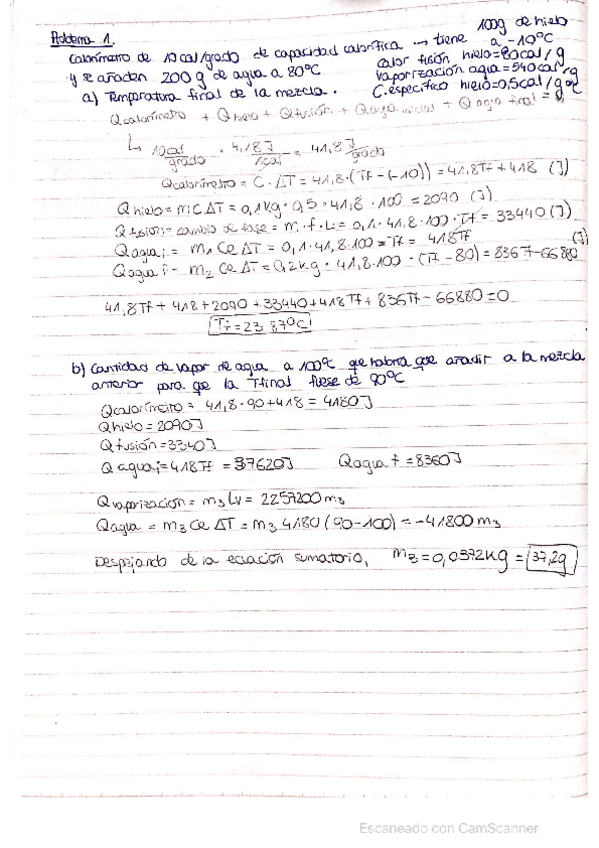 Problema 1.
100g de hielo
Calorímetro de 10 cal/grado de capacidad calorífica → tiene a -10ºC
y se añaden 200 g de agua a 80ºC
calor fusión hielo=80cal/g
vaporización agua=540cal/g
a) Temperatura final de la mezcla.
C.específico hielo=0,5cal/gºC
Qcalorímetro + Qhielo + Qfusión + Qagua + Qagua final = 0
↳ 10cal/grado · 4,18J/1cal = 41,8 J/grado
Qcalorímetro = C · ΔT = 41,8·(Tf-(-10)) = 41,8Tf + 418 (J)
Qhielo = mCΔT = 0,1kg · 0,5 · 41,8 · 100 = 2090 (J)
Qfusión = cambio de fase = m·f·L = 0,1·41,8·100·Tf = 33440 (J)
Qaguai = m₁ Ce ΔT = 0,1·41,8·100 = Tf = 418Tf
Qaguai = m₂ Ce ΔT = 0,2kg · 41,8·100 · (Tf-80) = 836Tf-66880 (J)
41,8Tf + 418 + 2090 + 33440 + 418Tf + 836Tf - 66880 = 0
Tf = 23,87ºC
b) Cantidad de vapor de agua a 100ºC que habría que añadir a la mezcla
anterior para que la Tfinal fuese de 90ºC
Qcalorímetro = 41,8·90+418 = 4180J
Qhielo = 2090J
Qfusión = 3340J
Qaguai = 418Tf = 37620J Qagua f = 8360J
Qvaporización = m₃ Lv = 2257200 m₃
Qagua = m₃ Ce ΔT = m₃ 4180 (90-100) = -41800 m₃
Despejando de la ecuación sumatorio, m₃ = 0,0372kg = 37,2g
Escaneado con CamScanner